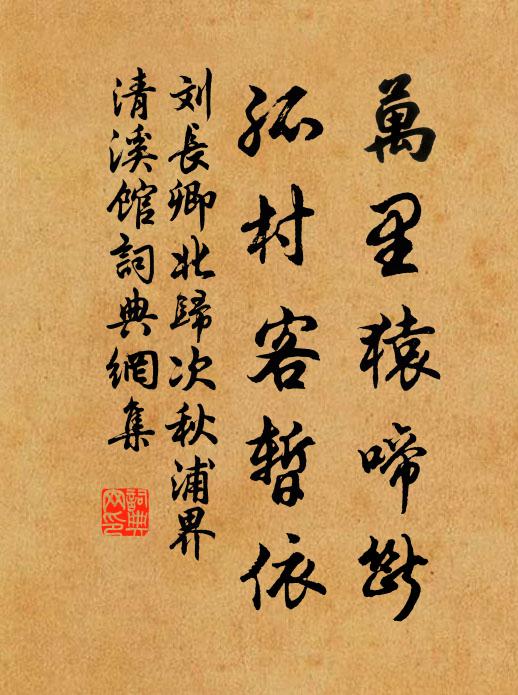 萬里猿啼斷
孤村客暫依
刘長卿北歸次秋浦界
清溪館詞典網集
詞典
网印